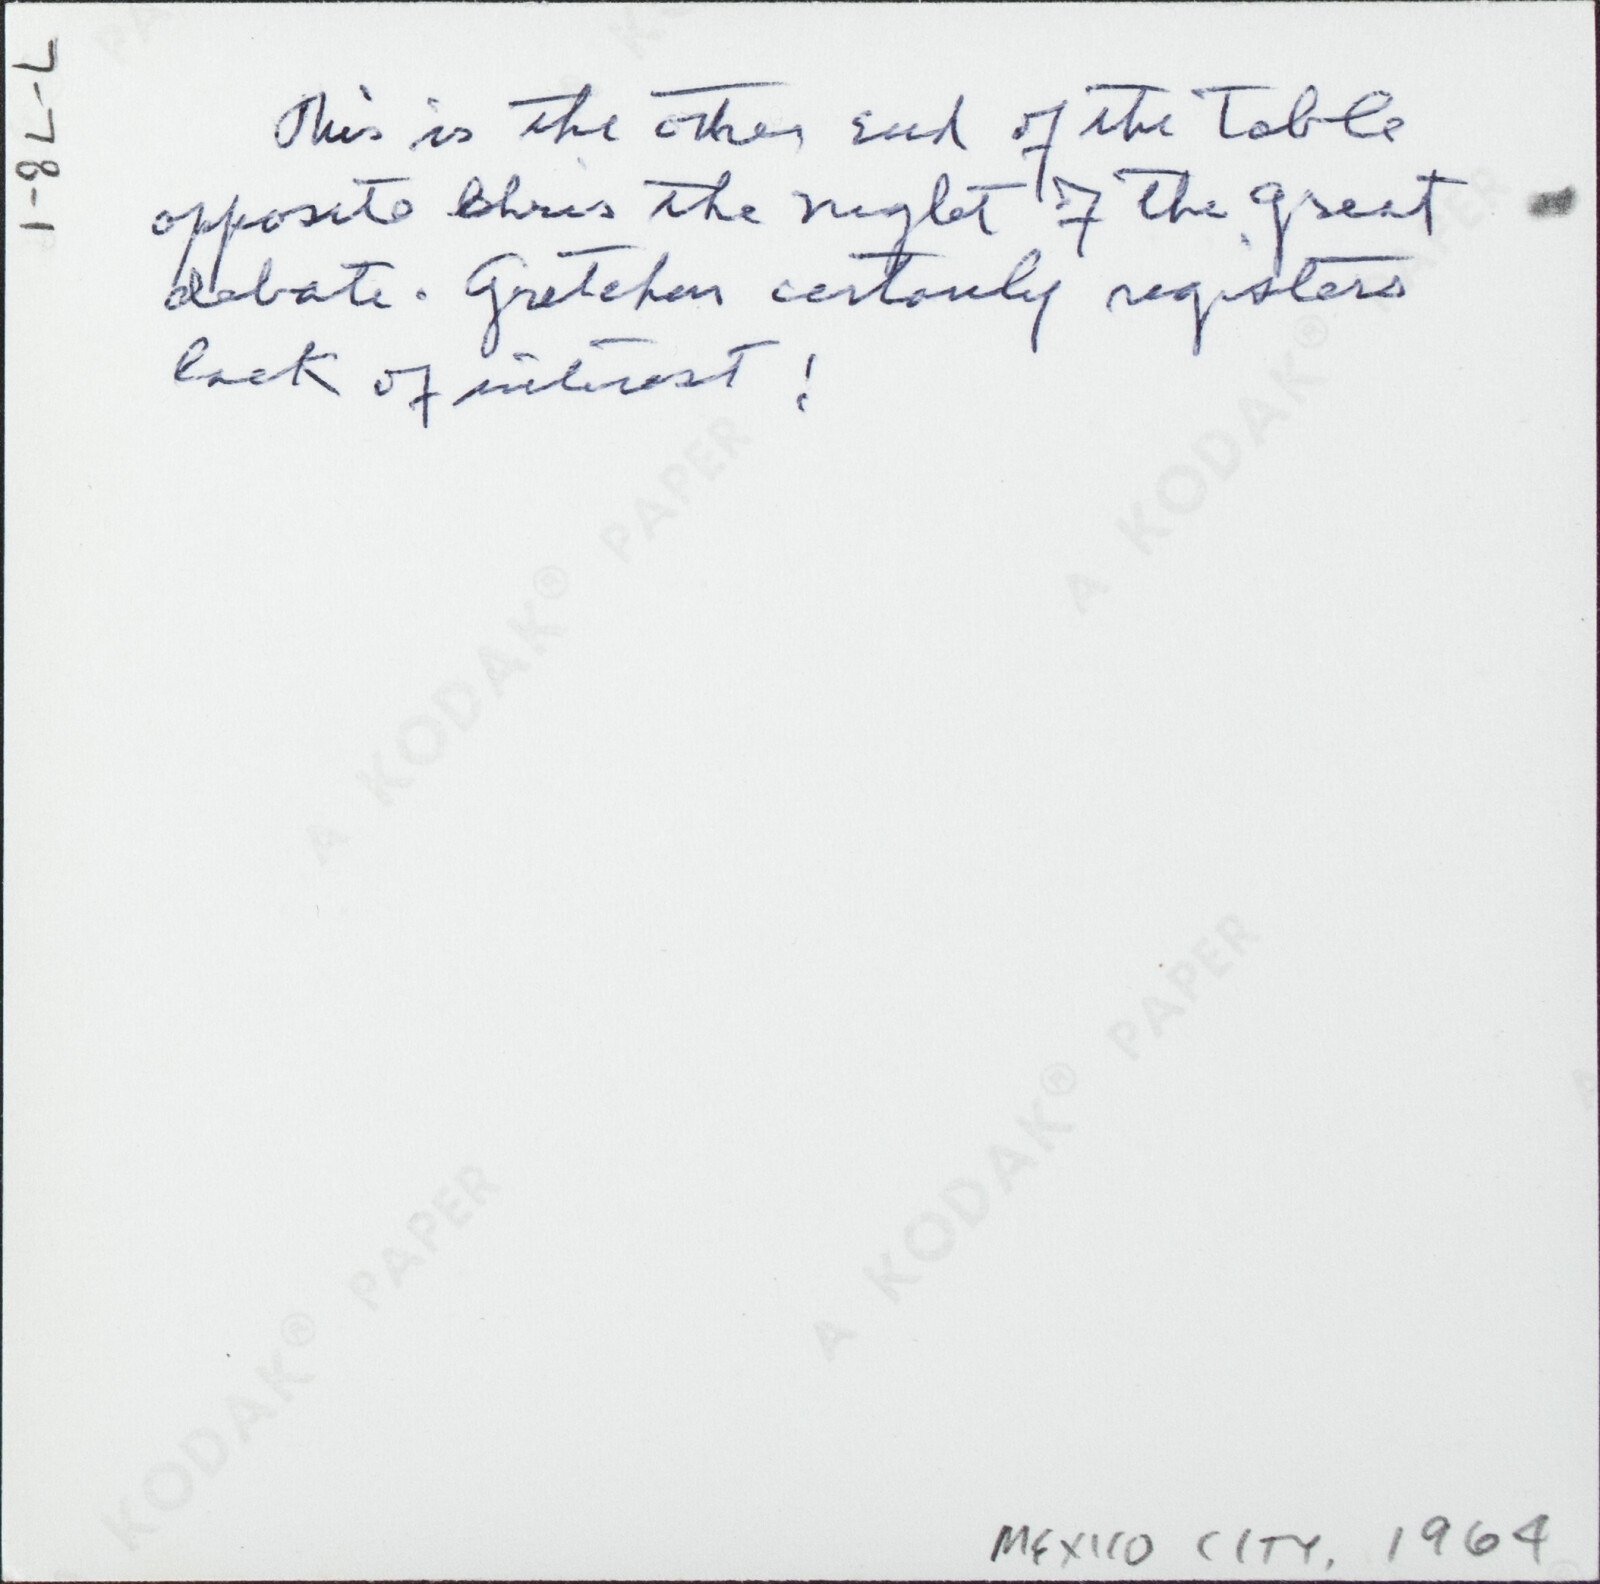 This is the other end of the table
opposite Chris the night of the great
debate. Gretchen certainly registers
lack of interest!
1-8L-L
A KODAK® PAPER
A KODAK® PAPER
A KODAK® PAPER
KODAK® PAPER
MEXICO CITY, 1964